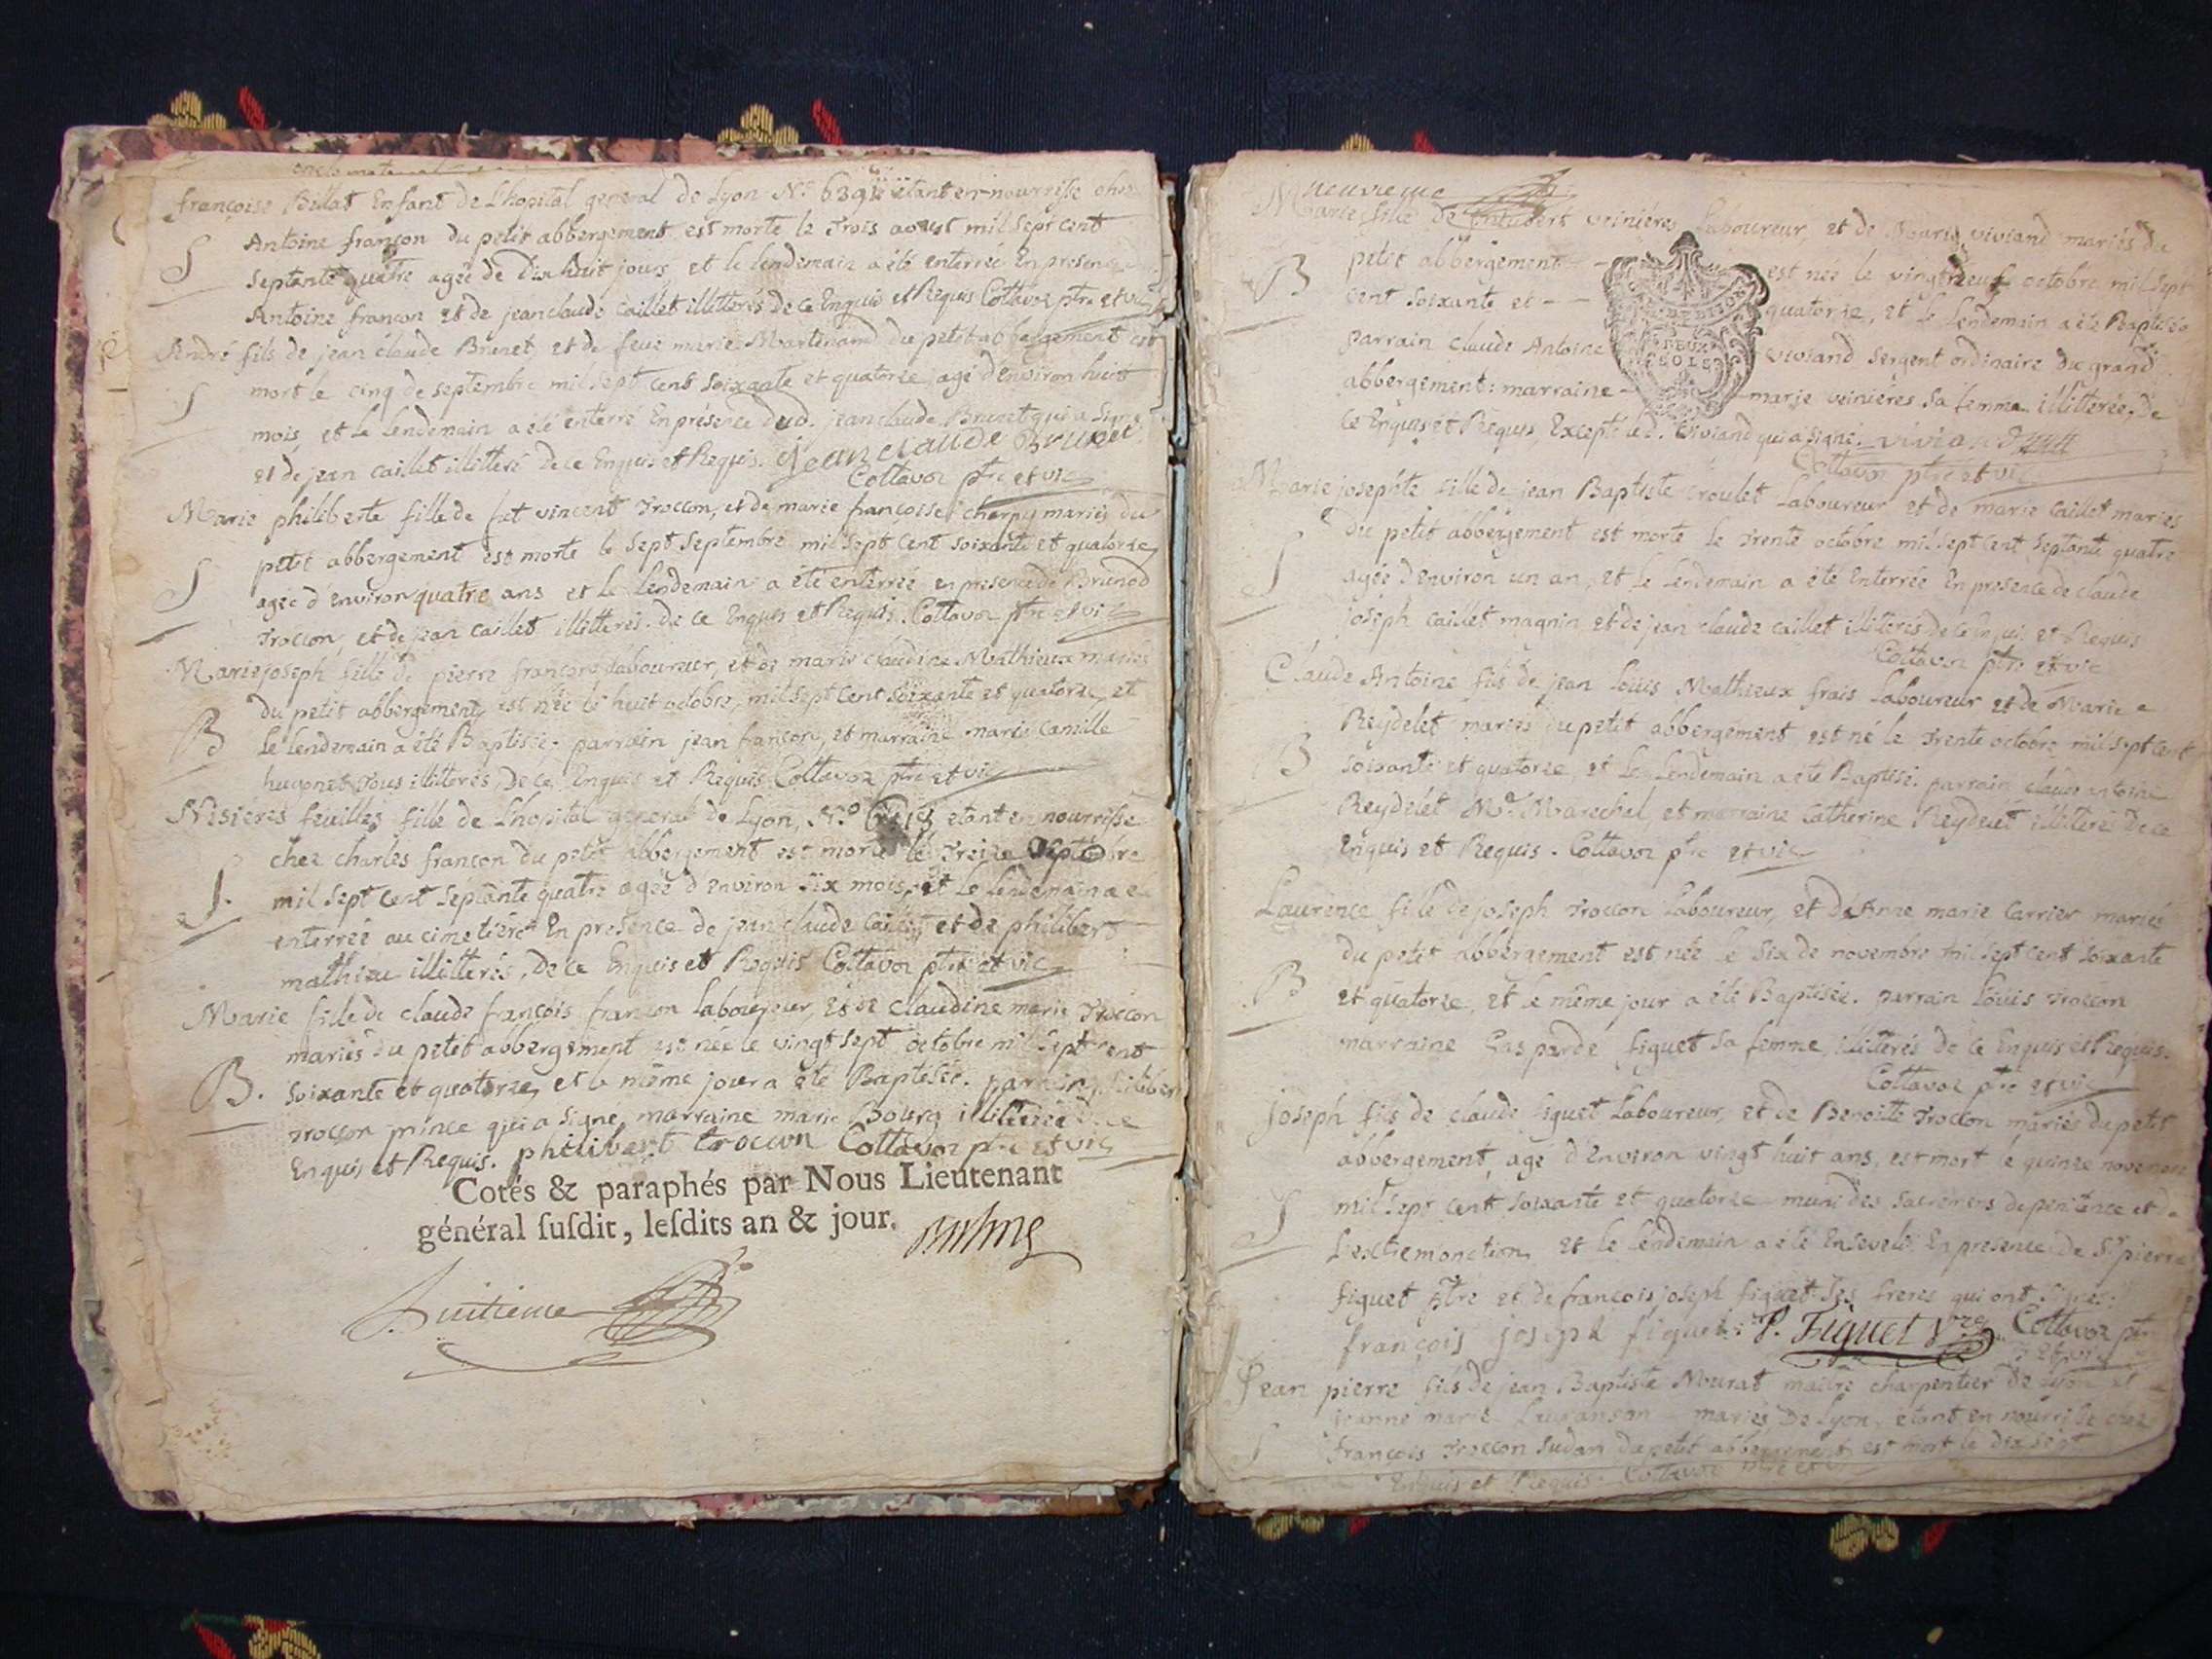 françoise Billat Enfant de L'hopital general de Lyon N.o étant en nourrisse
S Antoine françon du petit abbergement est morte le Trois aoust mil sept cent
septante quatre agée de Dix huit jours et le lendemain a été enterrée En presence
Antoine françon et de jean claude caillet illitterés de ce Enquis et Requis Cottavoz ptre et vic
André fils de jean claude Brunet, et de feue marie Martenand du petit abbergement est
S mort le cinq de septembre mil sept cent soixante et quatorze, agé d'environ huit
mois et le lendemain a été enterré En présence dud. jean claude Brunet qui a signé
et de jean caillet illitteré de ce Enquis et Requis. jean claude Brunet
Cottavoz ptre et vic
Marie philiberte fille de vincent Troccon, et de marie françoise charpy mariés du
S petit abbergement est morte le sept septembre mil sept cent soixante et quatorze,
agée d'environ quatre ans et le lendemain a été enterrée en presence de Brunod
Troccon, et de jean caillet illitterés. de ce Enquis et Requis. Cottavoz ptre et vic
Marie joseph fille de pierre françon laboureur, et de marie claudine Mathieux mariés
du petit abbergement est née le huit octobre, mil sept cent soixante et quatorze, et
B le lendemain a été Baptisée; parrain jean françon, et marraine marie camille
hugonet Tous illitterés, De ce, Enquis et Requis Cottavoz ptre et vic
feuilles fille de L'hopital general de Lyon, N.o etant en nourrisse
chez charles françon du petit abbergement est morte le Treize septembre
S. mil sept cent septante quatre agée d'environ six mois, et le lendemain a été
enterrée au cimetière En presence de jean claude caillet et de philibert
mathieu illitterés. De ce Enquis et Requis Cottavoz ptre et vic
Marie fille de claude françois françon laboureur, et de claudine marie Troccon
mariés du petit abbergement est née le vingt sept octobre mil sept cent
B. soixante et quatorze, et le même jour a été Baptisée. parrain philibert
Troccon prince qui a signé, marraine marie Bourg illitterée de ce
Enquis et Requis. philibert troccon Cottavoz ptre et vic
Cotés & paraphés par Nous Lieutenant
général ſuſdit, leſdits an & jour.
huitieme
neuvieme
Marie fille de veiniéres Laboureur, et de Marie viviand mariés du
B petit abbergement est née le vingt neuf octobre mil sept
cent soixante et quatorze, et le lendemain a été Baptisée
parrain claude Antoine viviand sergent ordinaire du grand
abbergement: marraine marie veiniéres sa femme illitterée, de
ce Enquis et Requis, Excepté led. viviand qui a signé.
Cottavoz ptre et vic
Marie josephte fille de jean Baptiste Laboureur et de marie caillet mariés
du petit abbergement est morte le Trente octobre mil sept cent septante quatre
S agée d'environ un an, et le lendemain a été Enterrée En presence de claude
joseph caillet magnin et de jean claude caillet illitterés de ce Enquis et Requis
Cottavoz ptre et vic
Claude Antoine fils de jean Louis Mathieux frais Laboureur et de Marie
Reydelet mariés du petit abbergement est né le Trente octobre mil sept cent
B soixante et quatorze, et le lendemain a été Baptisé. parrain claude antoine
Reydelet Me. Marechal, et marraine catherine Reydelet illitterés De ce
Enquis et Requis. Cottavoz ptre et vic
Laurence fille de joseph Troccon Laboureur, et d'Anne marie carrier mariés
du petit abbergement est née le six de novembre mil sept cent soixante
B et quatorze, et le même jour a été Baptisée. parrain Louis Troccon
marraine Gasparde figuet sa femme, illitterés de ce Enquis et Requis.
Cottavoz ptre et vic
joseph fils de claude figuet Laboureur, et de Benoitte Troccon mariés du petit
abbergement, agé d'environ vingt huit ans, est mort le quinze novembre
S mil sept cent soixante et quatorze muni des sacremens de penitence et de
L'extremonction, et le lendemain a été Enseveli En presence de Sr. pierre
figuet ptre et de françois joseph figuet ses freres qui ont signés:
françois joseph figuet P. Figuet Cottavoz ptre
et vic
Jean pierre fils de jean Baptiste Mourat maitre charpentier de Lyon et
jeanne marie mariés De Lyon, étant en nourrisse chez
S françois Troccon sudan du petit abbergement est mort le dix sept
Enquis et Requis. Cottavoz ptre et vic